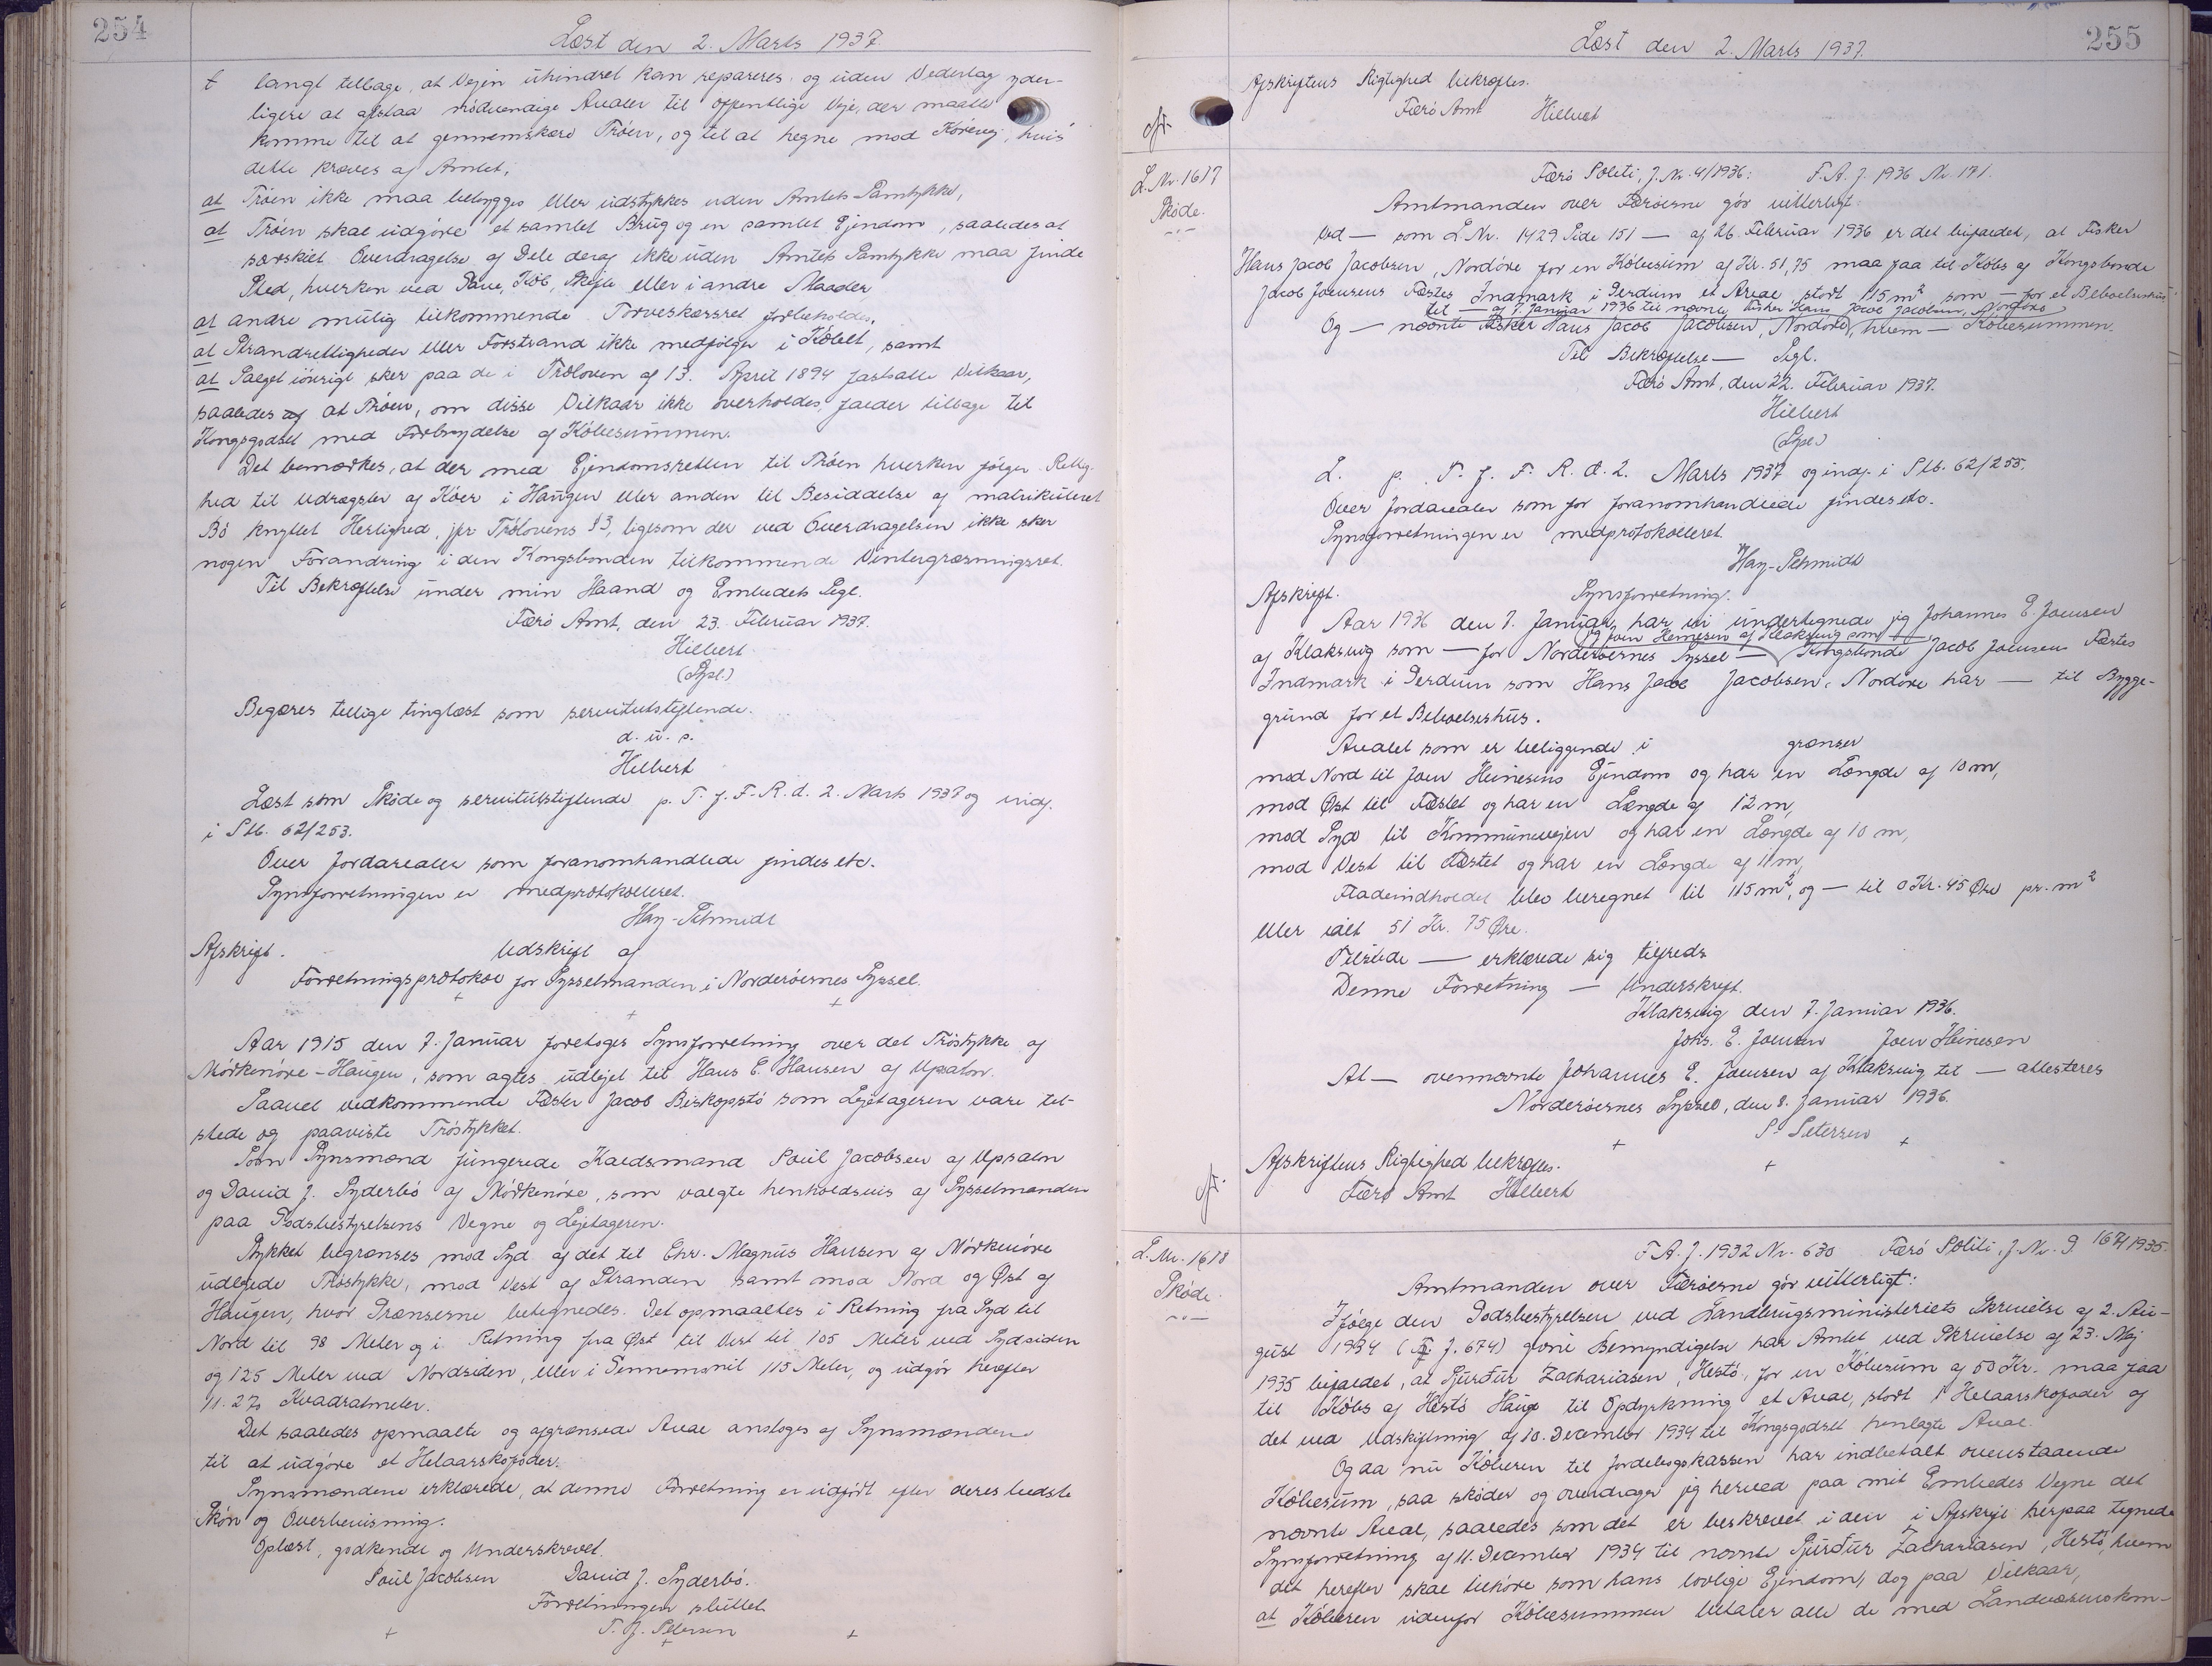 254
Læst den 2. Marts 1937.
t langt tilbage, at Vejen uhindret kan repareres og uden Vederlag yder-
ligere at afstaa nödvendige Arealer til offentlige Veje, der maatte
komme til at gennemskære Tröen, og til at hegne mod Körevej, hvis
dette kræves af Amtet,
at Tröen ikke maa bebygges eller udstykkes uden Amtets Samtykke,
at Tröen skal udgöre et samlet Brug og en samlet Ejendom, saaledes at
særskilt Overdragelse af Dele deraf ikke uden Amtets Samtykke maa finde
Sted, hverken ved Gave, Köb, Skifte eller i andre Maader
at andre mulig tilkommende Torveskærsret forbeholdes,
at Strandrettigheder eller Forstrand ikke medfölger i Köbet, samt
at Salget iövrigt sker paa de i Tröloven af 13. April 1894 fastsatte Vilkaar,
saaledes at Tröen, om disse Vilkaar ikke overholdes, falder tilbage til
Kongsgodset med Forbrydelse af Köbesummen.
Det bemærkes, at der med Ejendomsretten til Tröen hverken fölger Rettig-
hed til Udrægsler af Köer i Haugen eller anden til Besiddelse af matrikuleret
Bö knyttet Herlighed, jfr. Trölovens §3, ligesom der ved Overdragelsen ikke sker
nogen Forandring i den Kongsbonden tilkommende Vintergræsningsret.
Til Bekræftelse under min Haand og Embedets Segl.
Færö Amt, den 23. Februar 1937.
Hilbert
(Sgl.)
Begæres tillige tinglæst som servitutstiftende.
d. u. s.
Hilbert
Læst som Sköde og servitutstiftende p. T. f. F. R. d. 2. Marts 1937 og indf.
i Stb. 62/253.
Over Jordarealer som foranomhandlede findes etc.
Synsforretningen er medprotokolleret.
Hay-Schmidt
Afskrift. Udskrift af
Forretningsprotokol for Sysselmanden i Norderöernes Syssel.
Aar 1915 den 7. Januar foretoges Synsforretning over det Tröstykke af
Mörkenöre-Haugen, som agtes udlejet til Hans E. Hansen af Upsaln.
Saavel vedkommende Fæster Jacob Biskopstö som Lejetageren vare til-
stede og paaviste Tröstykket.
Som Synsmænd fungerede Kaldsmand Poul Jacobsen af Upsaln
og David J. Syderbö af Mörkenöre, som valgte henholdsvis af Sysselmanden
paa Godsbestyrelsens Vegne og Lejetageren.
Stykket begrænses mod Syd af det til Chr. Magnus Hansen af Mörkenöre
udlejede Tröstykke, mod Vest af Stranden samt mod Nord og Øst af
Haugen, hvor Grænserne betegnedes. Det opmaaltes i Retning fra Syd til
Nord til 98 Meter og i Retning fra Øst til Vest til 105 Meter ved Sydsiden
og 125 Meter ved Nordsiden, eller i Gennemsnit 115 Meter, og udgör herefter
11.270 Kvadratmeter.
Det saaledes opmaalte og afgrænsede Areal ansloges af Synsmændene
til at udgöre et Helaarskofoder.
Synsmændene erklærede, at denne Forretning er udfört efter deres bedste
Skön og Overbevisning.
Oplæst, godkendt og Underskrevet.
Poul Jacobsen David J. Syderbö.
Forretningen sluttet
T. J. Petersen
255
Læst den 2. Marts 1937.
Afskriftens Rigtighed bekræftes.
Færö Amt Hilbert
L. Nr. 1617
Sköde.
Færö Politi, J. Nr. 4/1936: F.A. J. 1936 Nr. 171.
Amtmanden over Færöerne gör vitterligt:
Ved — som L Nr. 1429 Side 151 — af 26. Februar 1936 er det bifaldet, at Fisker
Hans Jacob Jacobsen, Nordöre for en Köbesum af Kr. 51,75 maa faa til Köbs af Kongsbonde
Jacob Joensens Fæstes Indmark i Gerdum et Areal, stort 115 m² som — for et Beboelseshus
til — af 7. Januar 1936 til nævnte Fisker Hans Jacob Jacobsen, Nordöre
Og — nævnte Fisker Hans Jacob Jacobsen, Nordöre, hvem — Köbesummen.
Til Bekræftelse — Segl.
Færö Amt, den 22. Februar 1937.
Hilbert
(Sgl.)
L. p. T. f. F. R. d. 2. Marts 1937 og indf. i Stb. 62/255.
Over Jordarealer som for foranomhandlede findes etc.
Synsforretningen er medprotokolleret.
Hay-Schmidt
Afskrift. Synsforretning.
Aar 1936 den 7. Januar, har vi undertegnede jeg Johannes E. Joensen
jeg Joen Heinesen af Klaksvig som
af Klaksvig som — for Norderöernes Syssel — Kongsbonde Jacob Joensens Fæstes
Indmark i Gerdum som Hans Jacob Jacobsen, Nordöre har — til Bygge-
grund for et Beboelseshus.
Arealet som er beliggende i grænser
mod Nord til Joen Heinesens Ejendom og har en Længde af 10 m,
mod Øst til Fæstet og har en Længde af 12 m,
mod Syd til Kommunevejen og har en Længde af 10 m,
mod Vest til Fæstet og har en Længde af 11 m,
Fladeindholdet blev beregnet til 115 m², og — til 0 Kr. 45 Øre pr. m²
eller ialt 51 Kr. 75 Øre.
Tilstede — erklærede sig tilfreds
Denne Forretning — Underskrift.
Klaksvig den 7. Januar 1936.
Johs. E. Joensen Joen Heinesen
At — ovennævnte Johannes E. Joensen af Klaksvig til — attesteres
Norderöernes Syssel, den 8. Januar 1936.
S. Petersen
Afskriftens Rigtighed bekræftes.
Færö Amt Hilbert
L. Nr. 1618
Sköde.
F.A. J. 1932 Nr. 630 Færö Politi, J. Nr. 9 167/1935.
Amtmanden over Færöerne gör vitterligt:
Ifölge den Godsbestyrelsen ved Landbrugsministeriets Skrivelse af 2. Au-
gust 1934 ( J. 674) givne Bemyndigelse har Amtet ved Skrivelse af 23. Maj
1935 bifaldet, at Sjúrður Zachariasen, Hestö, for en Köbesum af 50 Kr. maa faa
til Köbs af Hestö Hauge til Opdyrkning et Areal, stort 1 Helaarskofoder af
det ved Udskiftning af 10. December 1934 til Kongsgodset henlagte Areal.
Og aa nu Köberen til Jordebogskassen har indbetalt ovenstaaende
Köbesum, saa sköder og overdrager jeg herved paa mit Embedes Vegne det
nævnte Areal, saaledes som det er beskrevet i den i Afskrift herpaa tegnede
Synsforretning af 11. December 1934 til nævnte Sjúrður Zachariasen, Hestö, hvem
det herefter skal tilhöre som hans lovlige Ejendom, dog paa Vilkaar,
at Köberen udenfor Köbesummen betaler alle de med Landvæsenskom-